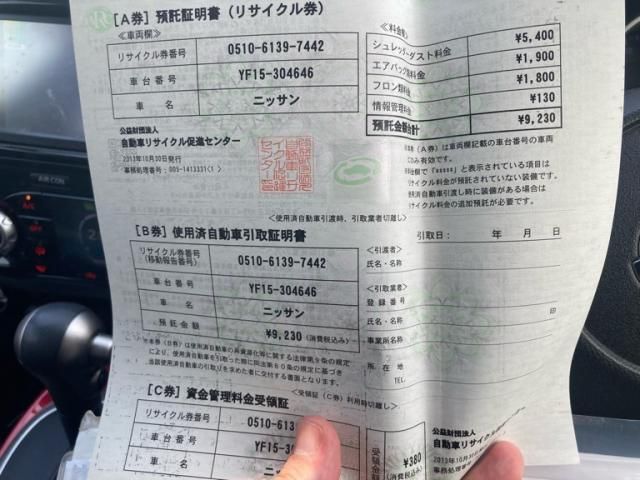 [A券] 預託証明書 (リサイクル券)
≪車両欄≫
リサイクル券番号 0510-6139-7442
車台番号 YF15-304646
車名 ニッサン
≪料金欄≫
シュレッダーダスト料金 ¥5,400
エアバッグ類料金 ¥1,900
フロン類料金 ¥1,800
情報管理料金 ¥130
預託金額合計 ¥9,230
公益財団法人
自動車リサイクル促進センター
2013年10月30日発行
(A券) は車両欄記載の車台番号の車両
のみ有効です。
金欄で「*****」と表示されている項目は
リサイクル料金が預託されていない装備です。
自動車引渡し時に装備がある場合は
リサイクル料金の追加預託が必要です。
<使用済自動車引渡時、引取業者切離し>
[B券] 使用済自動車引取証明書
引取日: 年 月 日
リサイクル券番号
(移動報告番号) 0510-6139-7442
車台番号 YF15-304646
車名 ニッサン
預託金額 ¥9,230 (消費税込み)
<引渡者>
氏名・名称
<引取業者>
登録番号
氏名・名称 印
事業所名
所在地
TEL
*本券 (B券) は、使用済自動車の再資源化等に関する法律第9条の規定
により、使用済自動車を引取った際に同法第80条の規定に基づき
当該使用済自動車の引取りを求めた者に交付する書面となります。
<受領証 (C券) 利用時切離し>
[C券] 資金管理料金受領証
リサイクル券番号 0510-613
車台番号 YF15-30
車名
受領金額 ¥380
(消費税込み)
公益財団法人
自動車リサイクル
2013年10月30
事務処理番号
AIR CON